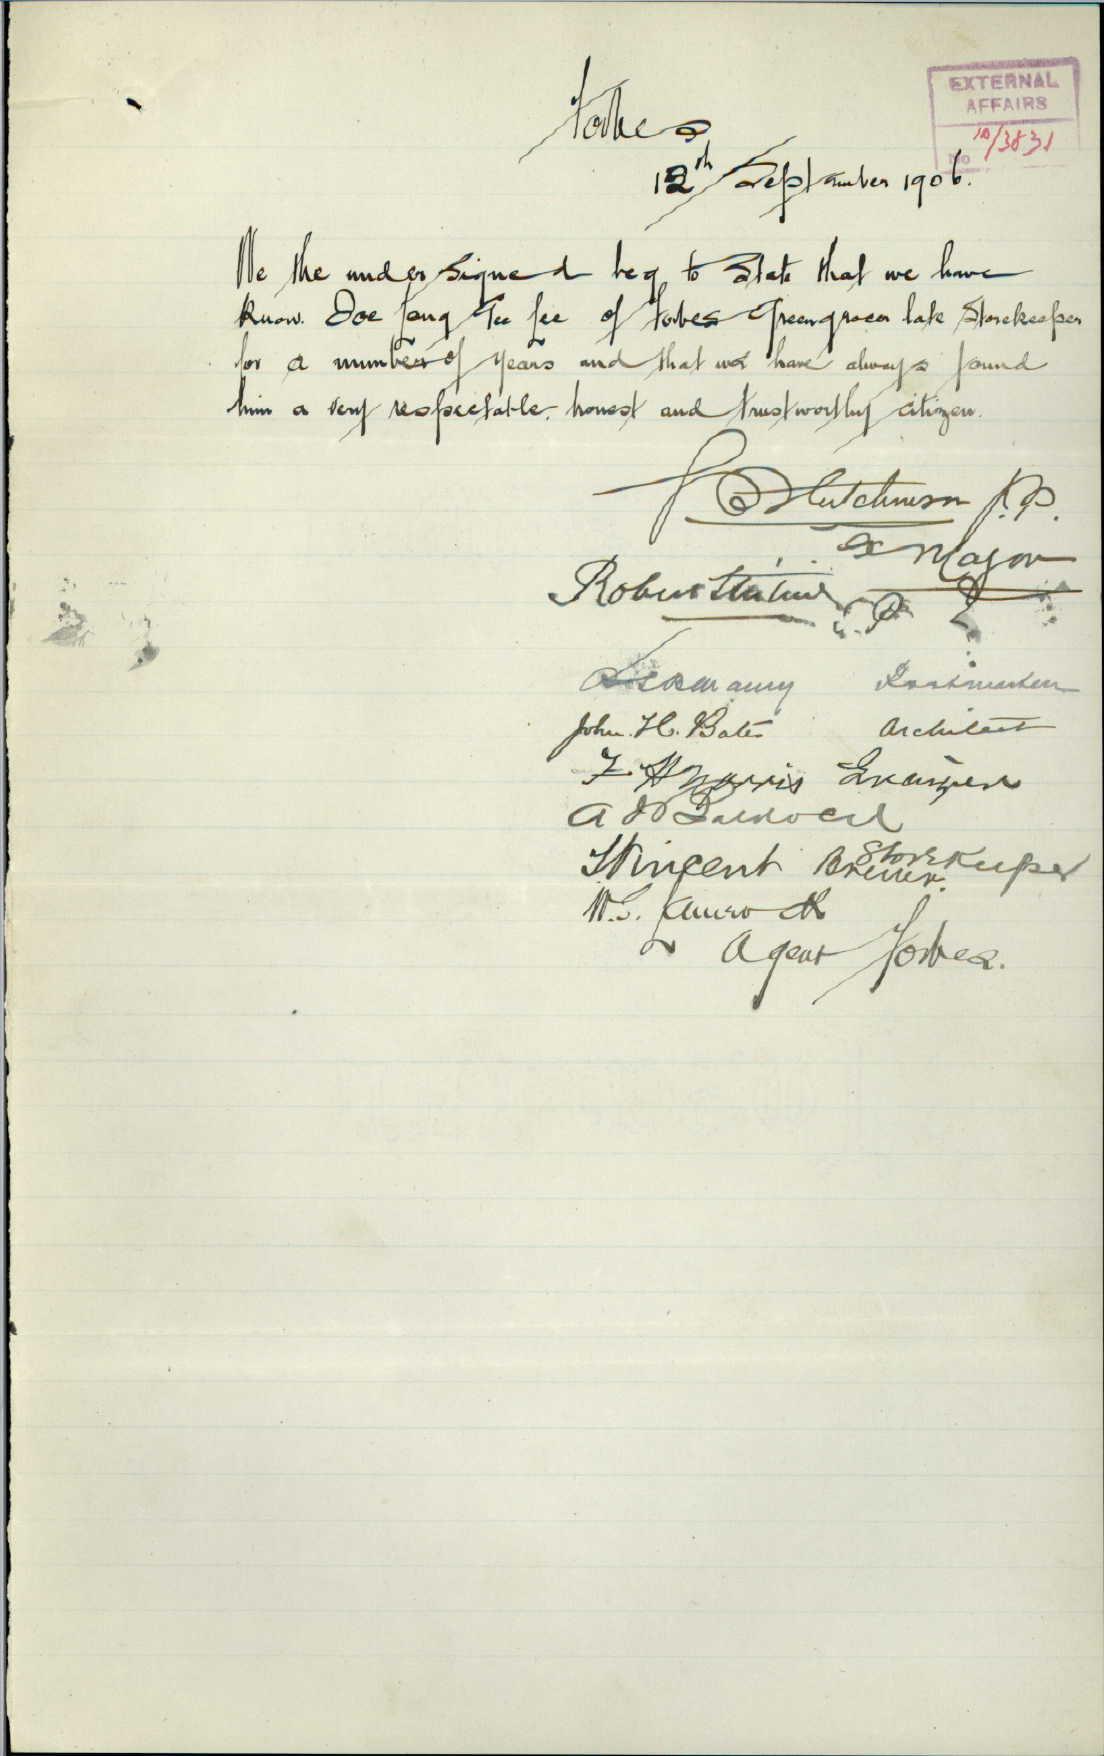 EXTERNAL
AFFAIRS
No 10/3831
Forbes
12th September 1906.
We the undersigned beg to State that we have
Know. Doe fong Tee fee of Forbes Greengrocer late Storekeeper
for a number of years and that we have always found
him a very respectable. honest and trustworthy citizen.
Hutchinson J.P.
Ex Mayor
Robert
John. H. Bates Architect
F. H Norris Grazier
A
Storekeeper
Vincent Brewer.
W.G.
Agent Forbes.